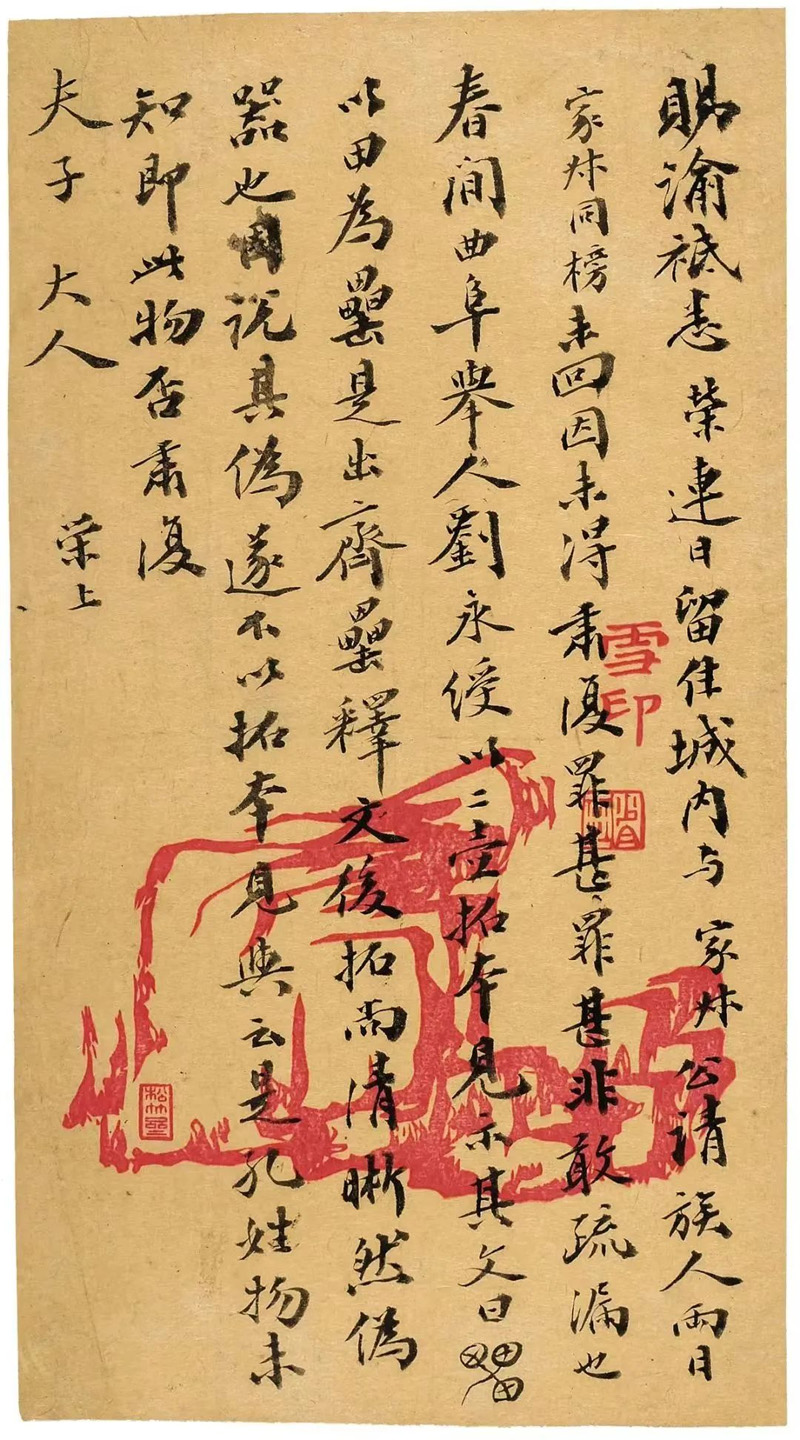 賜諭祗悉 榮連日留住城內与 家叔公請 族人兩日
家叔同榜未回因未得肅復罪甚罪甚非敢疏漏也
春間曲阜舉人劉永綬以二壺拓本見示其文曰
以田為罍是出齊罍釋文後拓尚清晰然偽
器也因說其偽遂不以拓本見與云是孔姓物未
知即此物否肅復
夫子 大人 榮上
雪印
松竹